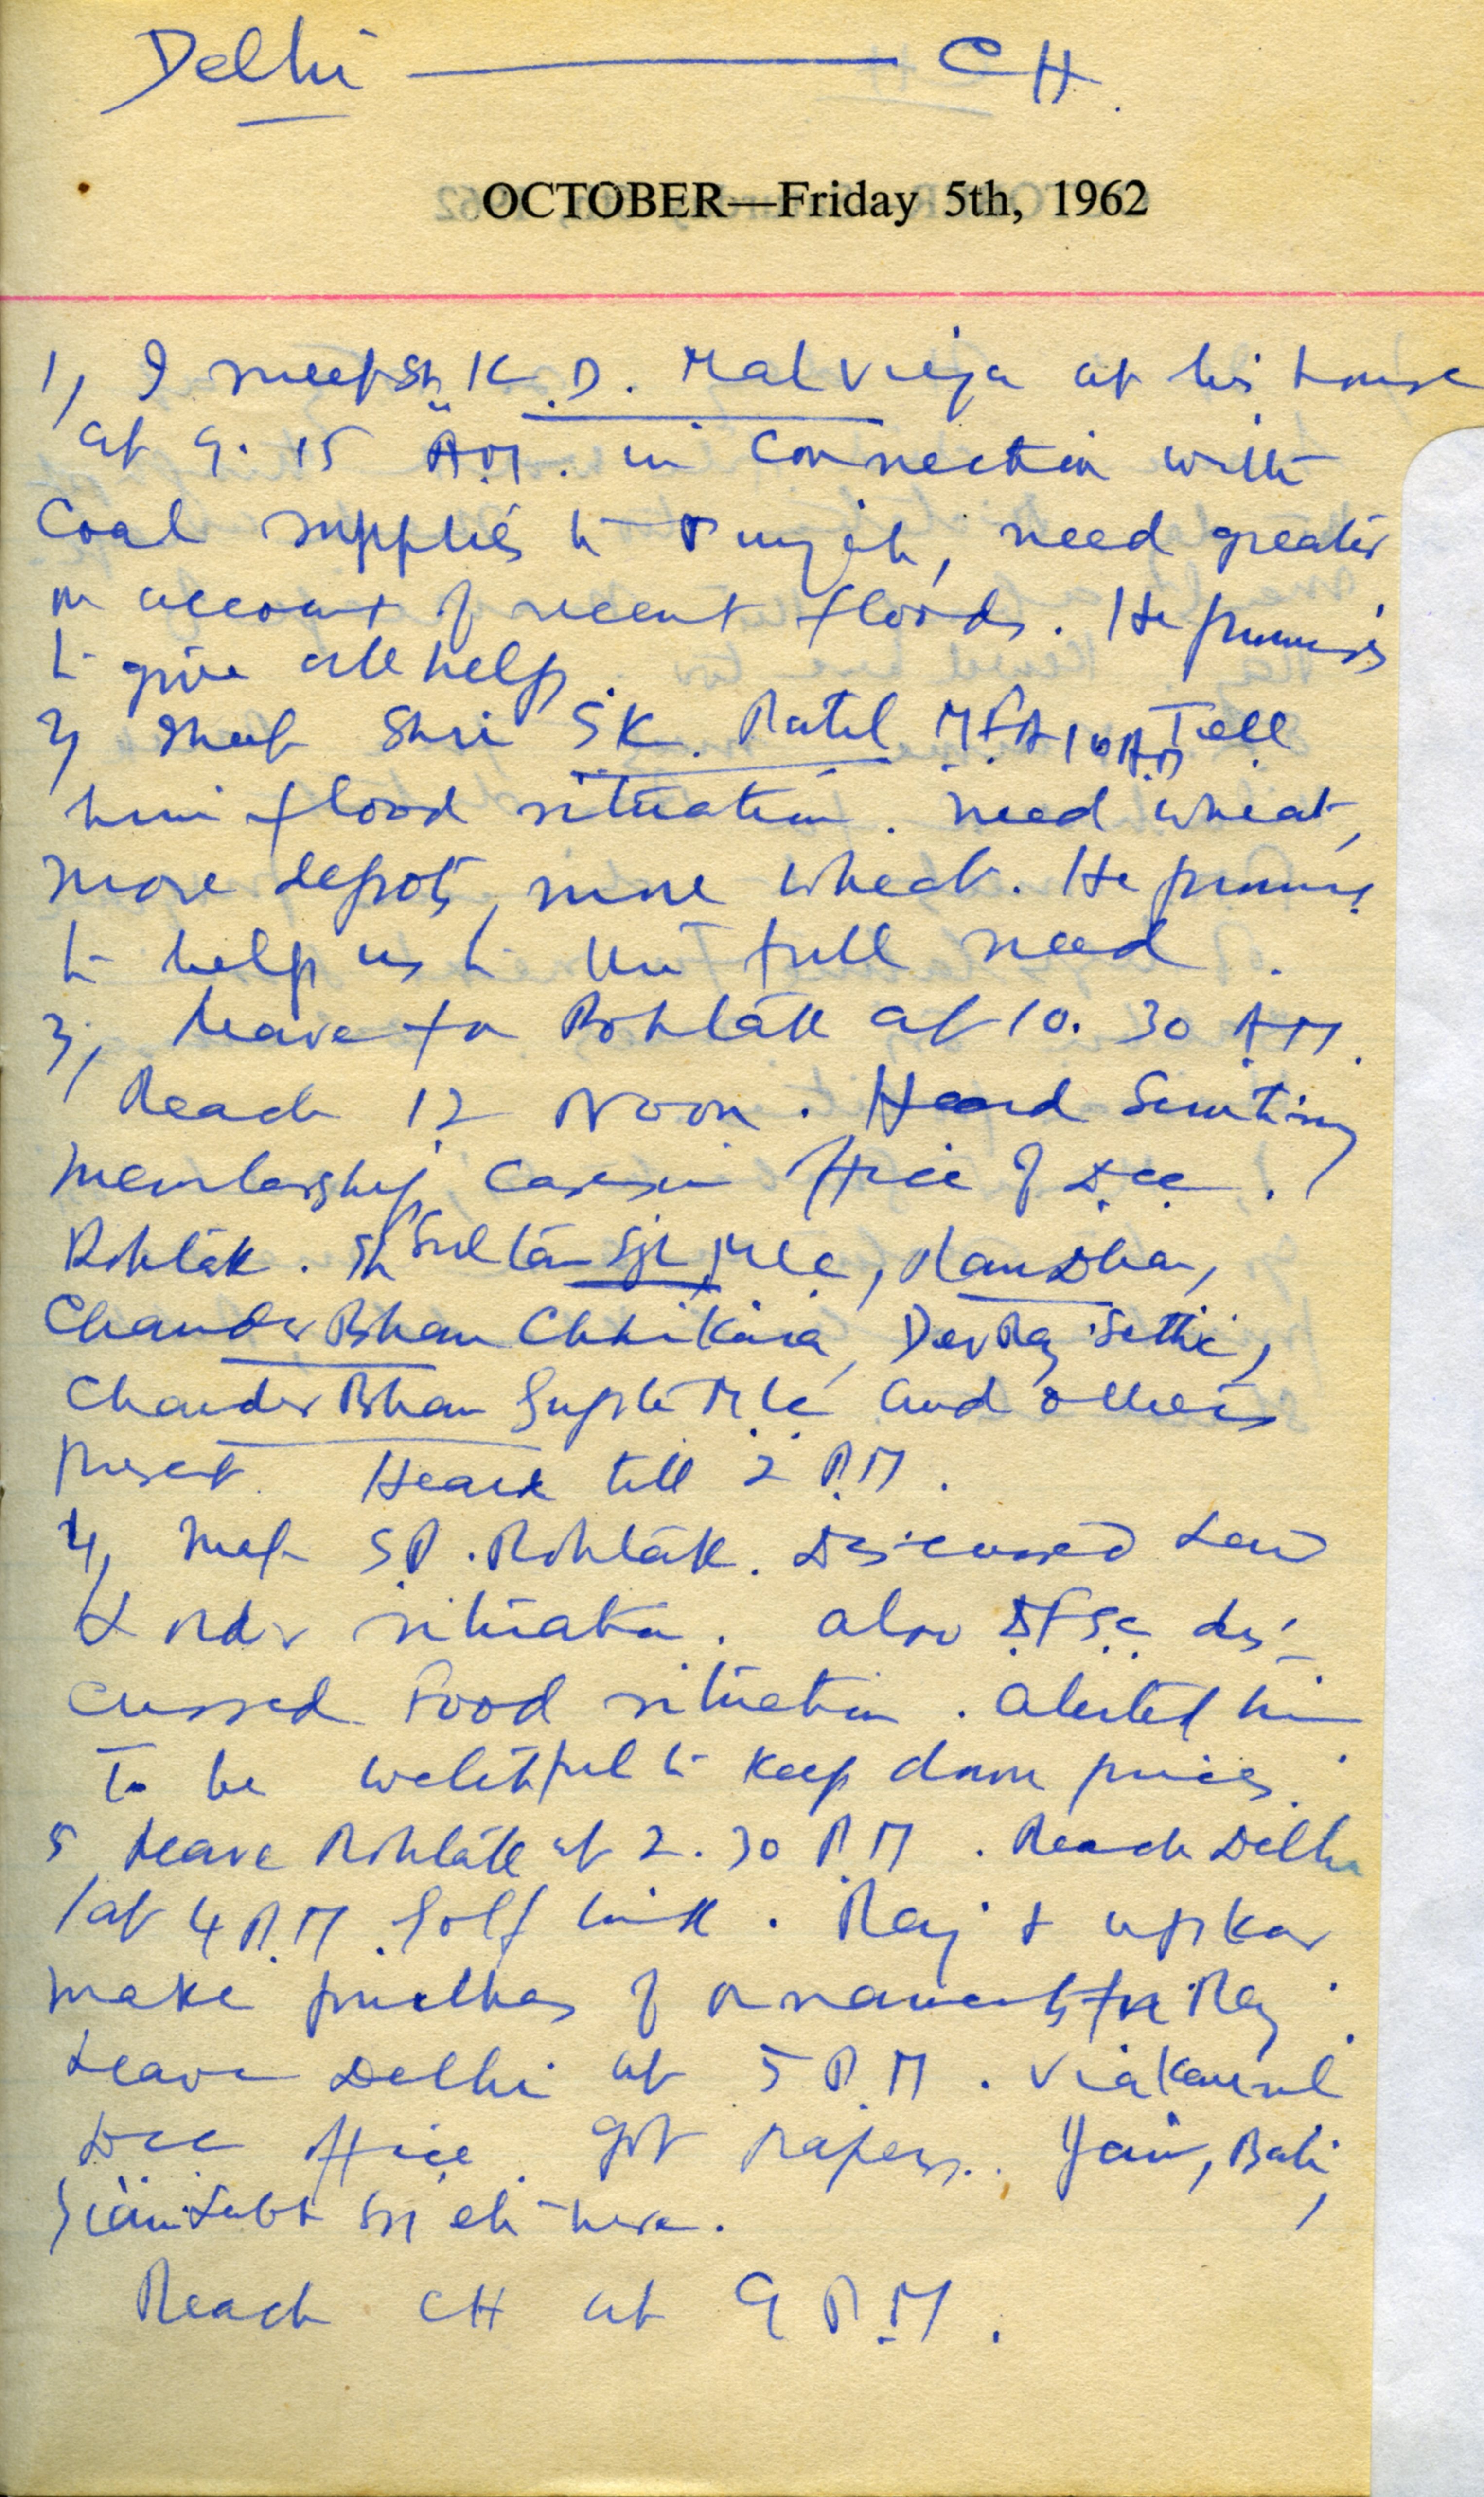 Delhi — CH.
OCTOBER—Friday 5th, 1962
1, I meet Sh K. D. Malviya at his house
at 9.15 A.M. in connection with
Coal supplies to Punjab, need greater
on account of recent floods. He promises
to give all help.
2, Meet Shri S.K. Patil M.F.A 10 A.M Tell
him flood situation. Need wheat,
more depots, more wheat. He promises
to help us to the full need.
3, Leave for Rohtak at 10.30 A.M.
Reach 12 Noon. Heard Scrutiny
membership cases in office of D.C.C.
Rohtak. Sh Sultan Sgh MLC, Ram Dhan,
Chander Bhan Chhikara, Dev Raj Sethi,
Chander Bhan Gupta MLC and others
present. Heard till 2 P.M.
4, Met S.P. Rohtak. Discussed Law
& order situation. Also D.F.S.C dis-
cussed Food situation. Alerted him
To be watchful to keep down prices.
5, Leave Rohtak at 2.30 P.M. Reach Delhi
at 4 P.M. Golf Link. Raj & Upkar
make purchases of ornaments for Raj.
Leave Delhi at 5 P.M. via Karnal
DCC office. Got papers. Jain,
etc here.
Reach CH at 9 P.M.